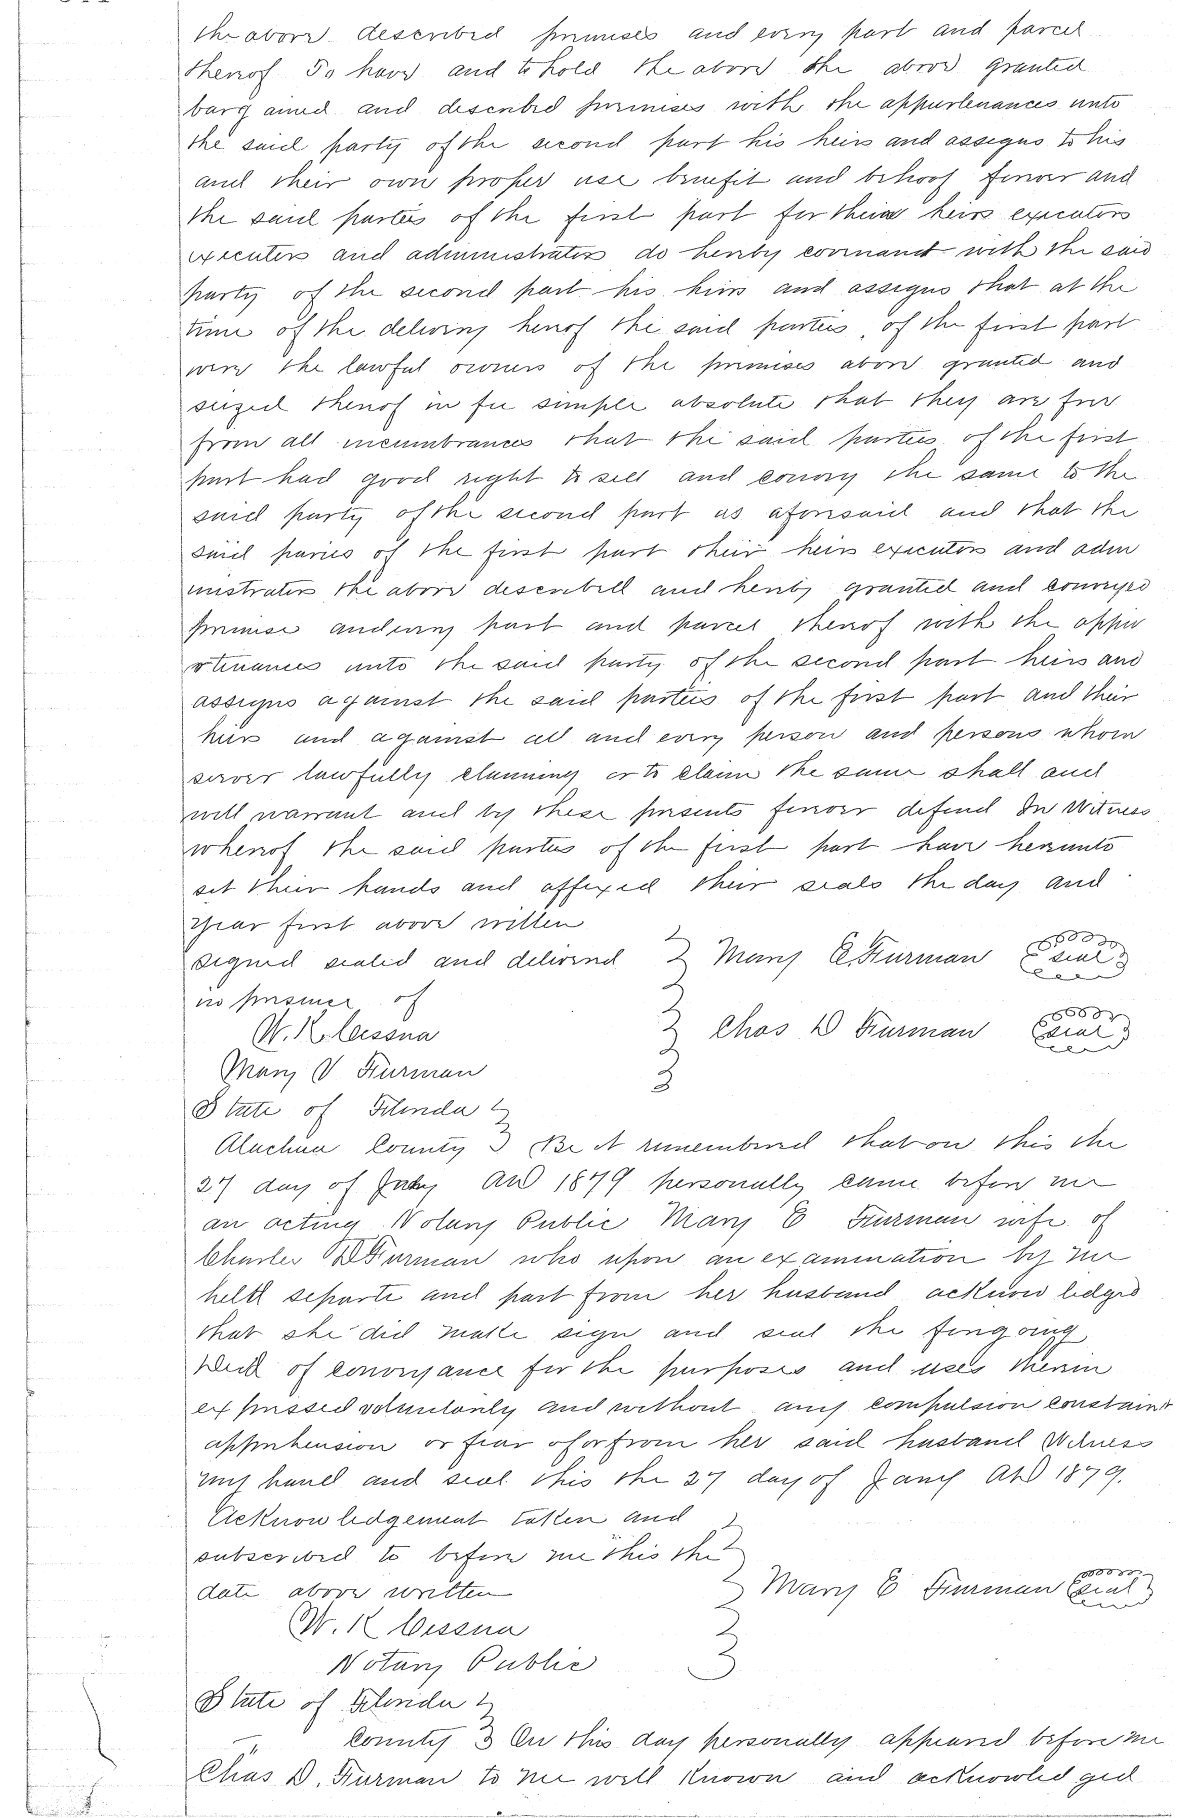 the above described premises and every part and parcel
thereof To have and to hold the above the above granted
barg ained and described premises with the appurtenances unto
the said party of the second part his heirs and assigns to his
and their own proper use benefit and behoof forever and
the said parties of the first part for their heirs executors
executers and administrators do hereby covenant with the said
party of the second part his heirs and assigns that at the
time of the delivery hereof the said parties of the first part
were the lawful owners of the premises above granted and
seized thereof in fee simple absolute that they are free
from all incumbrances that the said parties of the first
part had good right to sell and convey the same to the
said party of the second part as aforesaid and that the
said paries of the first part their heirs executors and adm
inistrators the above described and hereby granted and conveyed
premise and every part and parcel thereof with the appu
rtenances unto the said party of the second part heirs and
assigns against the said parties of the first part and their
heirs and against all and every person and persons whom
soever lawfully claiming or to claim the same shall and
will warrant and by these presents forever defend In Witness
whereof the said parties of the first part have hereunto
set their hands and affixed their seals the day and
year first above written
signed sealed and delivered Mary E. Furman seal
in presence of
W. K. Cessna Chas D Furman seal
Mary V Furman
State of Florida
Alachua County Be it remembered that on this the
27 day of AD 1879 personally came before me
an acting Notary Public Mary E Furman wife of
Charles D Furman who upon an examination by me
held separte and part from her husband acknow ledged
that she did make sign and seal the foregoing
Deed of conveyance for the purposes and uses therein
expressed voluntarily and without any compulsion constraint
apprehension or fear of or from her said husband Witness
my hand and seal this the 27 day of Jany AD 1879.
Acknow ledgement taken and
subscribed to before me this the
date above written Mary E Furman seal
W. K Cessna
Notary Public
State of Florida
County On this day personally appeared before me
Chas D. Furman to me well known and acknowled ged